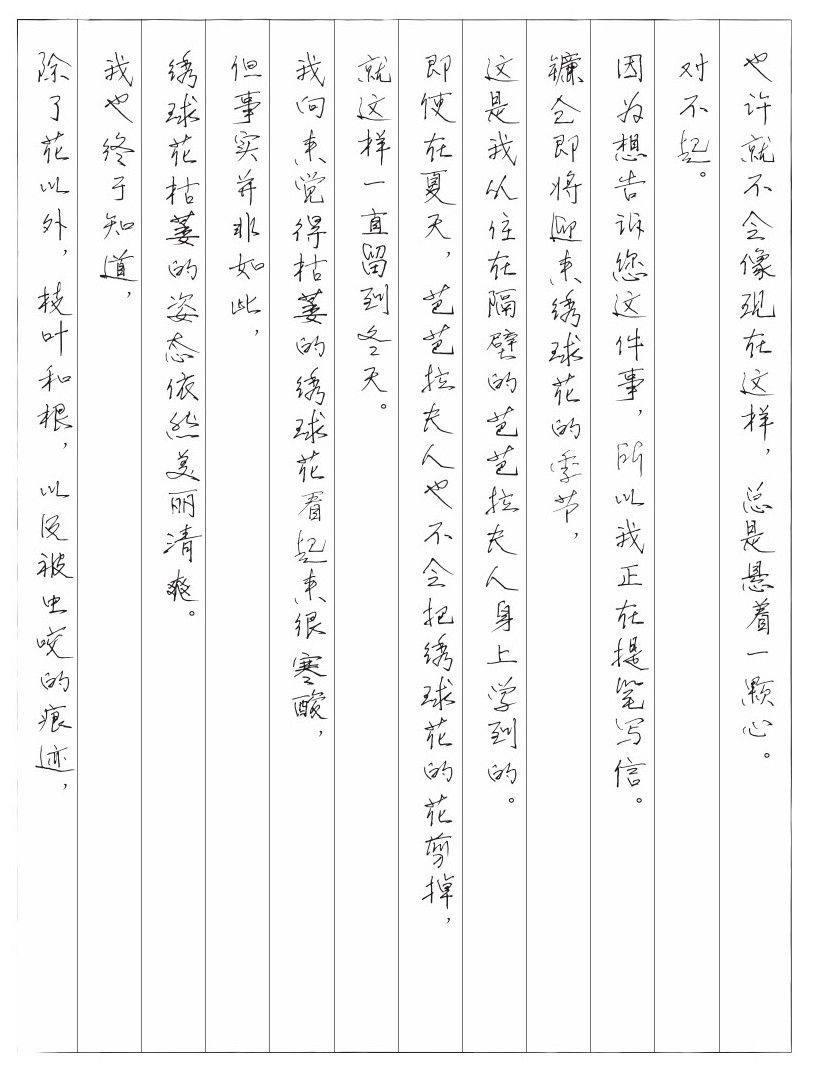 也许就不会像现在这样，总是悬着一颗心。
对不起。
因为想告诉您这件事，所以我正在提笔写信。
镰仓即将迎来绣球花的季节，
这是我从住在隔壁的芭芭拉夫人身上学到的。
即使在夏天，芭芭拉夫人也不会把绣球花的花剪掉，
就这样一直留到冬天。
我向来觉得枯萎的绣球花看起来很寒酸，
但事实并非如此，
绣球花枯萎的姿态依然美丽清爽。
我也终于知道，
除了花以外，枝叶和根，以及被虫咬的痕迹，